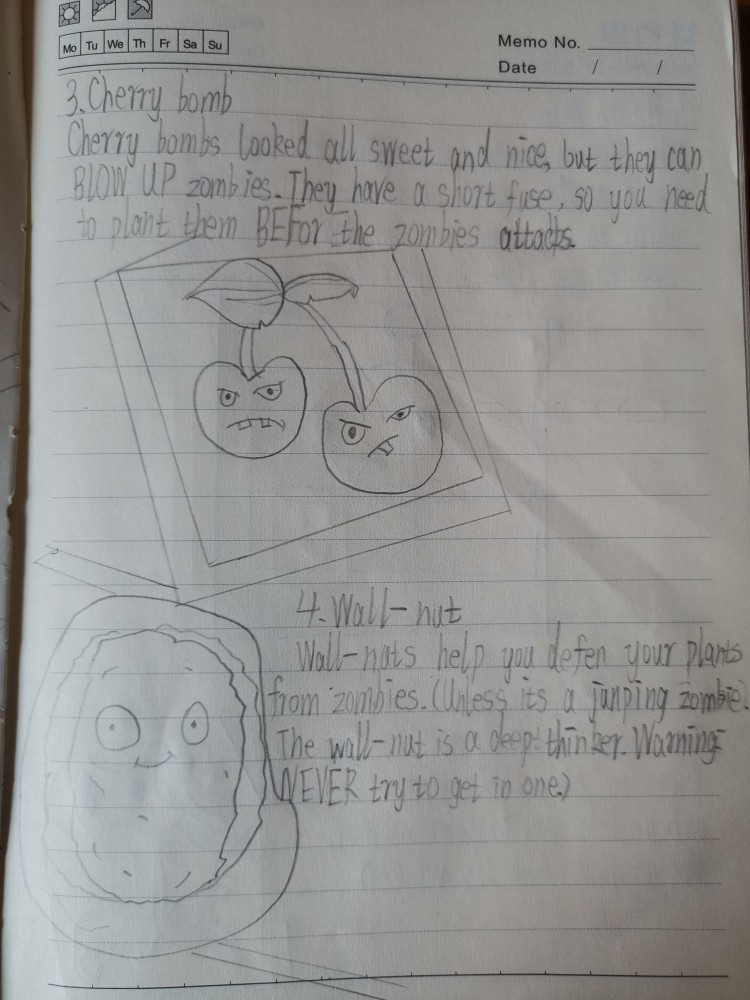 Mo Tu We Th Fr Sa Su
Memo No.
Date / /
3. Cherry bomb
Cherry bombs looked all sweet and nice, but they can
BLOW UP zombies. They have a short fuse, so you need
to plant them BEFor the zombies attacks.
4. Wall-nut
Wall-nuts help you defen your plants
from zombies. (Unless its a junping zombie.
The wall-nut is a deep thinker. Warning:
NEVER try to get in one.)